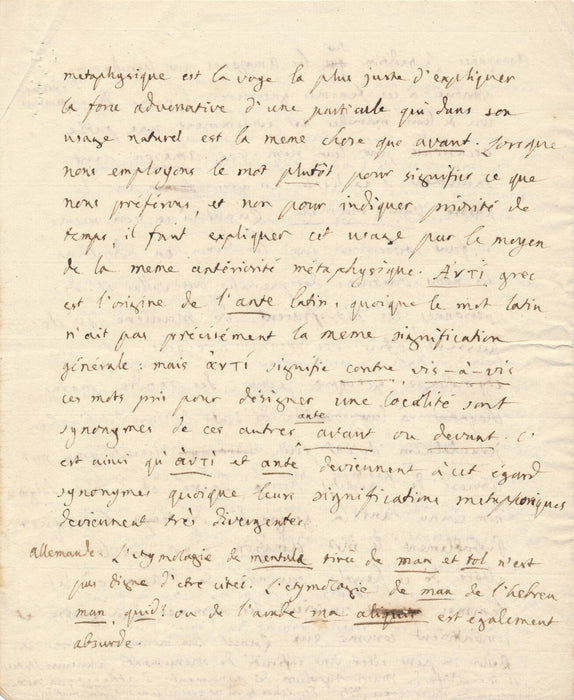 metaphysique est la voye la plus juste d'expliquer
la force adversative d'une particule qui dans son
usage naturel est la meme chose que avant. Lorsque
nous employons le mot plutôt pour signifier ce que
nous préférons, et non pour indiquer priorité de
temps, il faut expliquer cet usage par le moyen
de la meme antériorité métaphysique. Ἀντί grec
est l'origine de l'ante latin, quoique le mot latin
n'ait pas précisément la meme signification
générale: mais ἀντί signifie contre, vis-à-vis
ces mots pris pour désigner une localité sont
synonymes de ces autres ante avant ou devant. C'
est ainsi qu'ἀντί et ante deviennent à cet égard
synonymes quoique leurs significations metaphoriques
deviennent très divergentes.
allemande. L'etymologie de mentula tirée de man et tol n'est
pas digne d'etre citée. L'etymologie de man de l'hebreu
man, quid? ou de l'arabe ma aliquid est egalement
absurde.